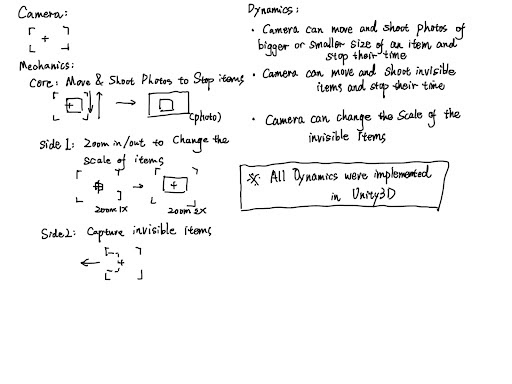 Camera:
Mechanics:
Core: Move & Shoot Photos to Stop items
(photo)
Side 1: Zoom in/out to Change the
scale of items
zoom 1X
zoom 2X
Side2: Capture invisible items
Dynamics:
• Camera can move and shoot photos of
bigger or smaller size of an item and
stop their time
• Camera can move and shoot invisible
items and stop their time
• Camera can change the Scale of the
invisible Items
※: All Dynamics were implemented
in Unity3D